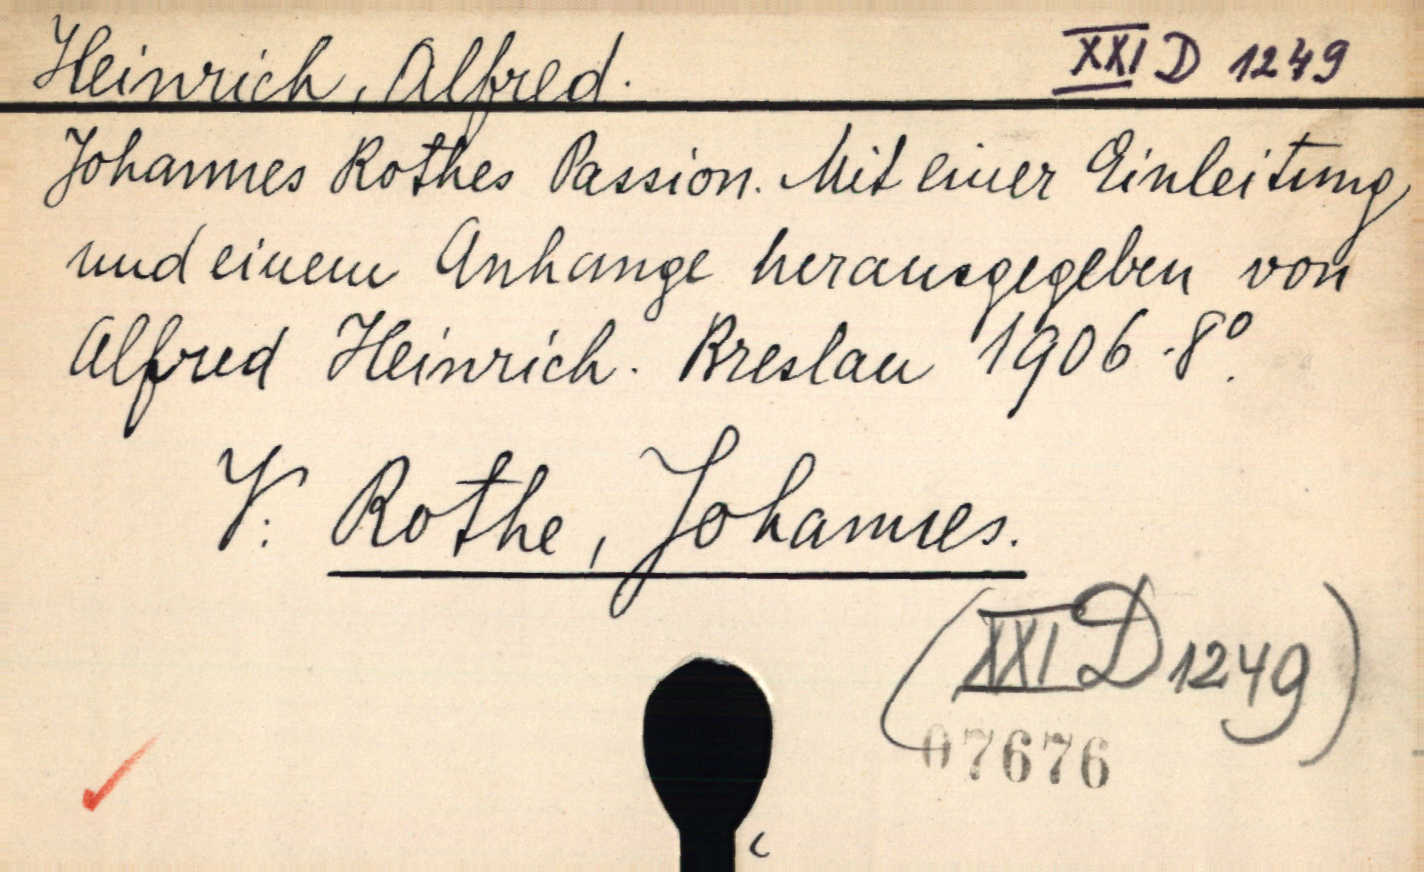 Heinrich, Alfred. XXI D 1249
Johannes Rothes Passion. Mit einer Einleitung
und einem Anhange herausgegeben von
Alfred Heinrich. Breslau 1906. 8°.
V: Rothe, Johannes.
(XXI D 1249)
07676